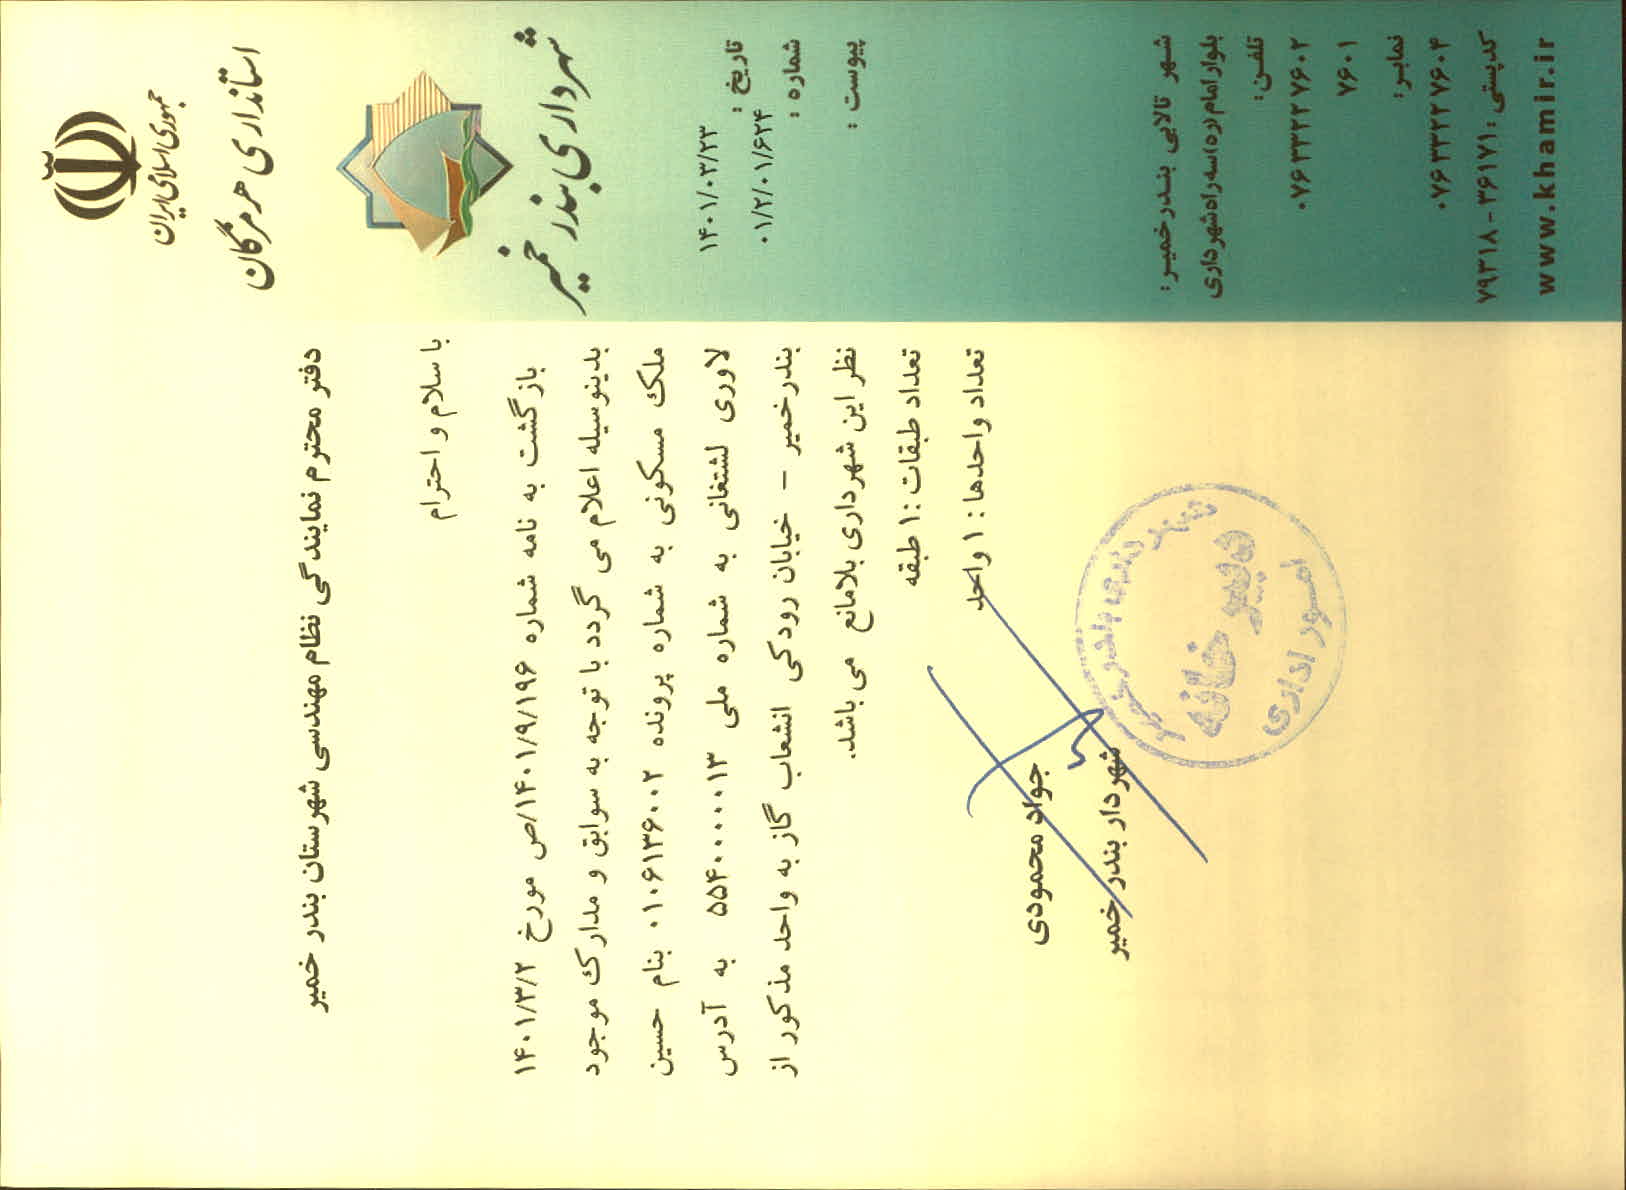 جمهوری اسلامی ایران
استانداری هرمزگان
شهرداری بندر خمیر
تاریخ : ۱۴۰۱/۰۳/۲۳
شماره : ۰۱/۲/۰۱/۶۲۴
پیوست :
دفتر محترم نمایندگی نظام مهندسی شهرستان بندر خمیر
با سلام و احترام
بازگشت به نامه شماره ۱۴۰۱/۹/۱۹۶/ص مورخ ۱۴۰۱/۳/۲
بدینوسیله اعلام می گردد با توجه به سوابق و مدارک موجود
ملک مسکونی به شماره پرونده ۰۱۰۶۱۳۶۰۰۲ بنام حسین
لاوری لشتغانی به شماره ملی ۵۵۴۰۰۰۰۰۱۳ به آدرس
بندرخمیر - خیابان رودکی انشعاب گاز به واحد مذکور از
نظر این شهرداری بلامانع می باشد.
تعداد طبقات :۱ طبقه
تعداد واحدها : ۱ واحد
جواد محمودی
شهردار بندر خمیر
شهرداری بندر خمیر
دبیرخانه
امور اداری
شهر تالابی بندرخمیر:
بلوار امام(ره)سه راه شهرداری
تلفن:
۰۷۶۳۳۲۲۷۶۰۲
۷۶۰۱
نمابر:
۰۷۶۳۳۲۲۷۶۰۴
کدپستی :۳۶۱۷۱ - ۷۹۳۱۸
www.khamir.ir